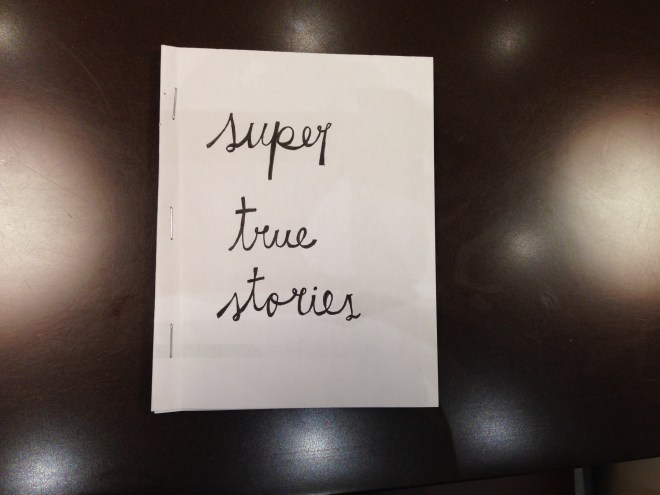 super
true
stories